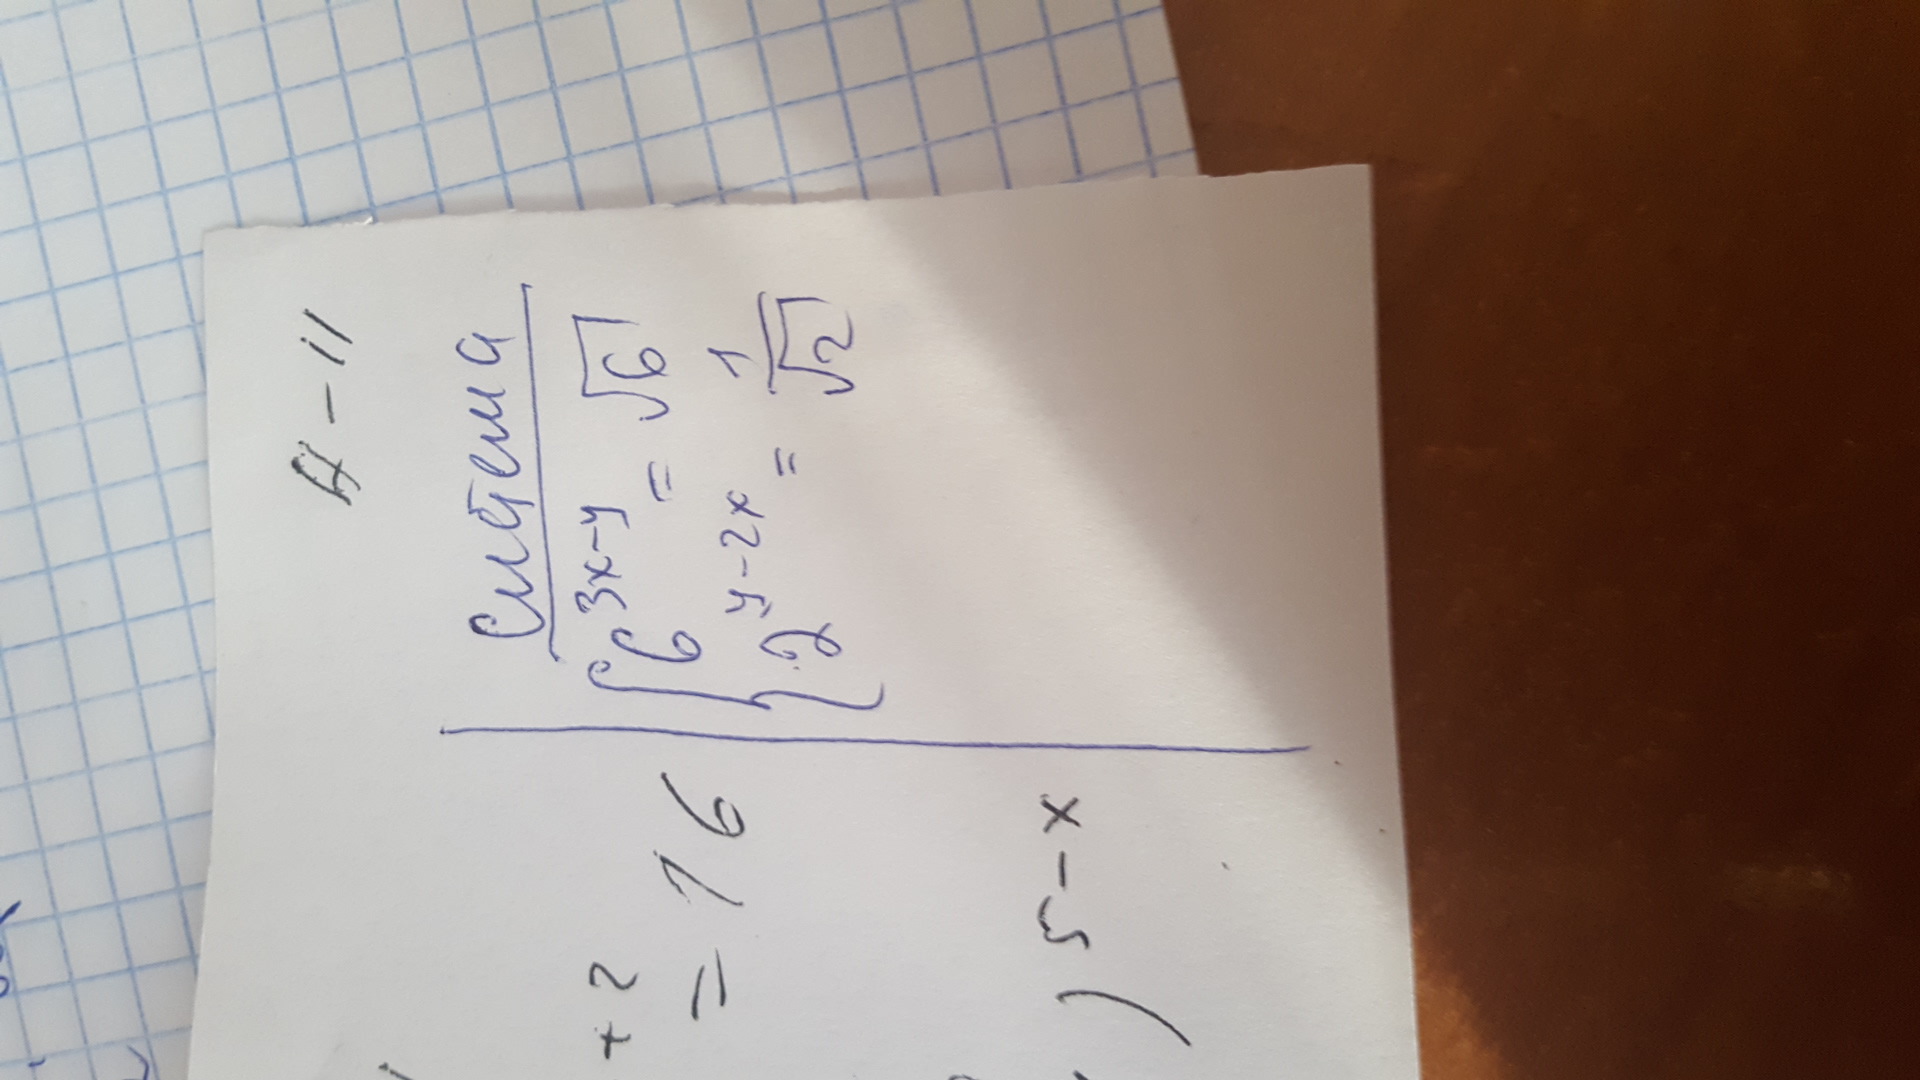 А-11
Система
{ 6^(3x-y) = √6
2^(y-2x) = 1/√2
+2
= 16
) 5-x